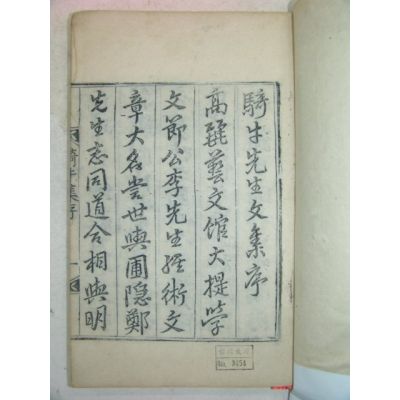 騎牛先生文集序
高麗藝文館大提學
文節公李先生經術文
章大名當世與圃隱鄭
先生志同道合相與明
騎牛集序
一
No. 3154